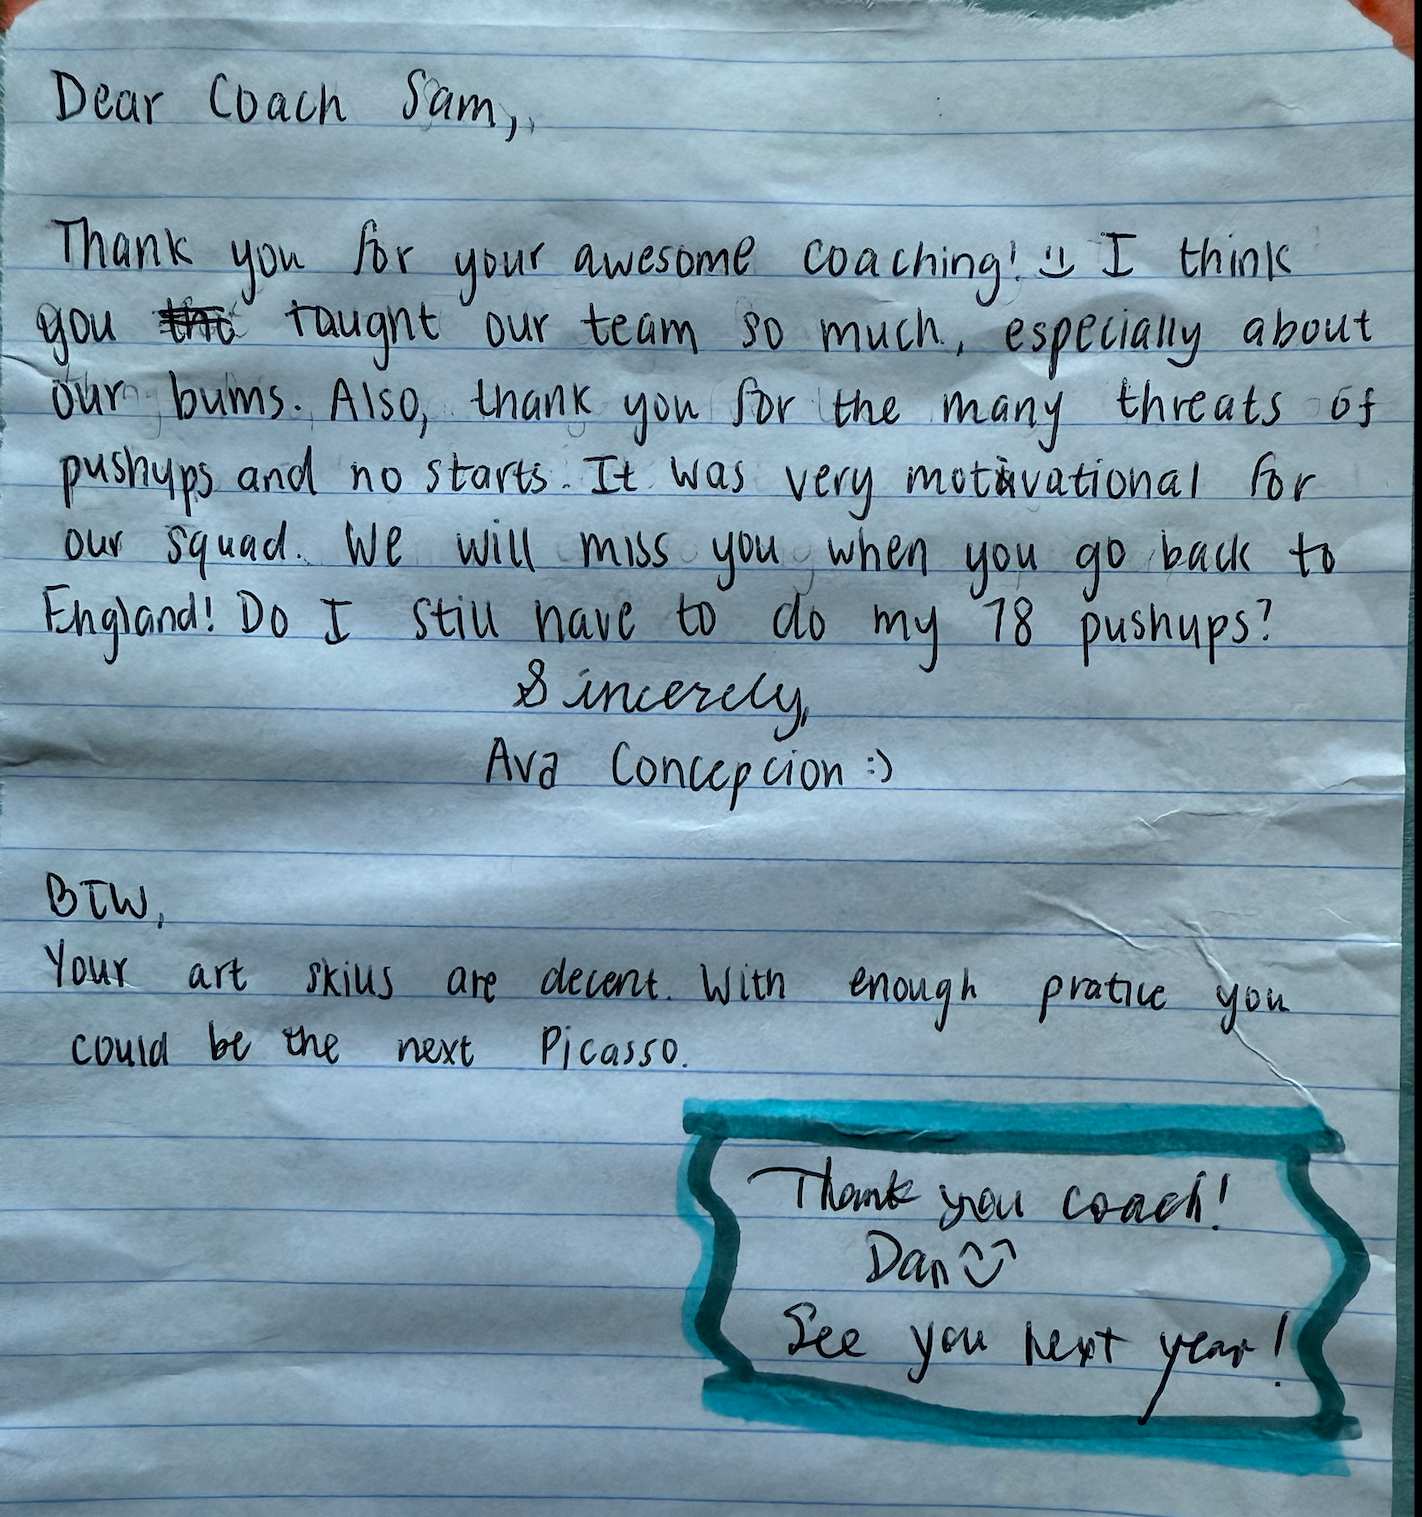 Dear Coach Sam,
Thank you for your awesome coaching! I think
you taught our team so much, especially about
our bums. Also, thank you for the many threats of
pushups and no starts. It was very motivational for
our squad. We will miss you when you go back to
England! Do I still have to do my 78 pushups?
Sincerely,
Ava Concepcion :)
BTW,
Your art skills are decent. With enough pratice you
could be the next Picasso.
Thank you coach!
Dan
See you next year!